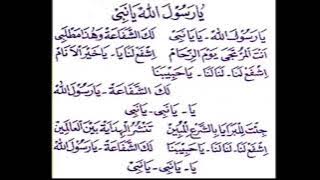 يَا رَسُوْلَ اللهْ يَا نَبِيْ
يَا رَسُوْلَ اللهْ - يَا يَا نَبِيْ لَكَ الشَّفَاعَةْ وَهٰذَا مَطْلَبِيْ
اَنْتَ الْمُرْتَجَى يَوْمَ الزِّحَامِ اِشْفَعْ لَنَا - يَا خَيْرَ الْاَنَامْ
اِشْفَعْ لَنَا - لَنَا لَنَا - يَا حَبِيْبَنَا
لَكَ الشَّفَاعَةْ - يَا رَسُوْلَ اللهْ
يَا - يَا نَبِيْ - يَا نَبِيْ
جِئْتَ لِلْبَرَايَا بِالشَّرْعِ الْمُبِيْنْ تَنْشُرُ الْهِدَايَةْ بَيْنَ الْعَالَمِيْنْ
اِشْفَعْ لَنَا - لَنَا لَنَا - يَا حَبِيْبَنَا لَكَ الشَّفَاعَةْ - يَا رَسُوْلَ اللهْ
يَا - يَا نَبِيْ - يَا نَبِيْ